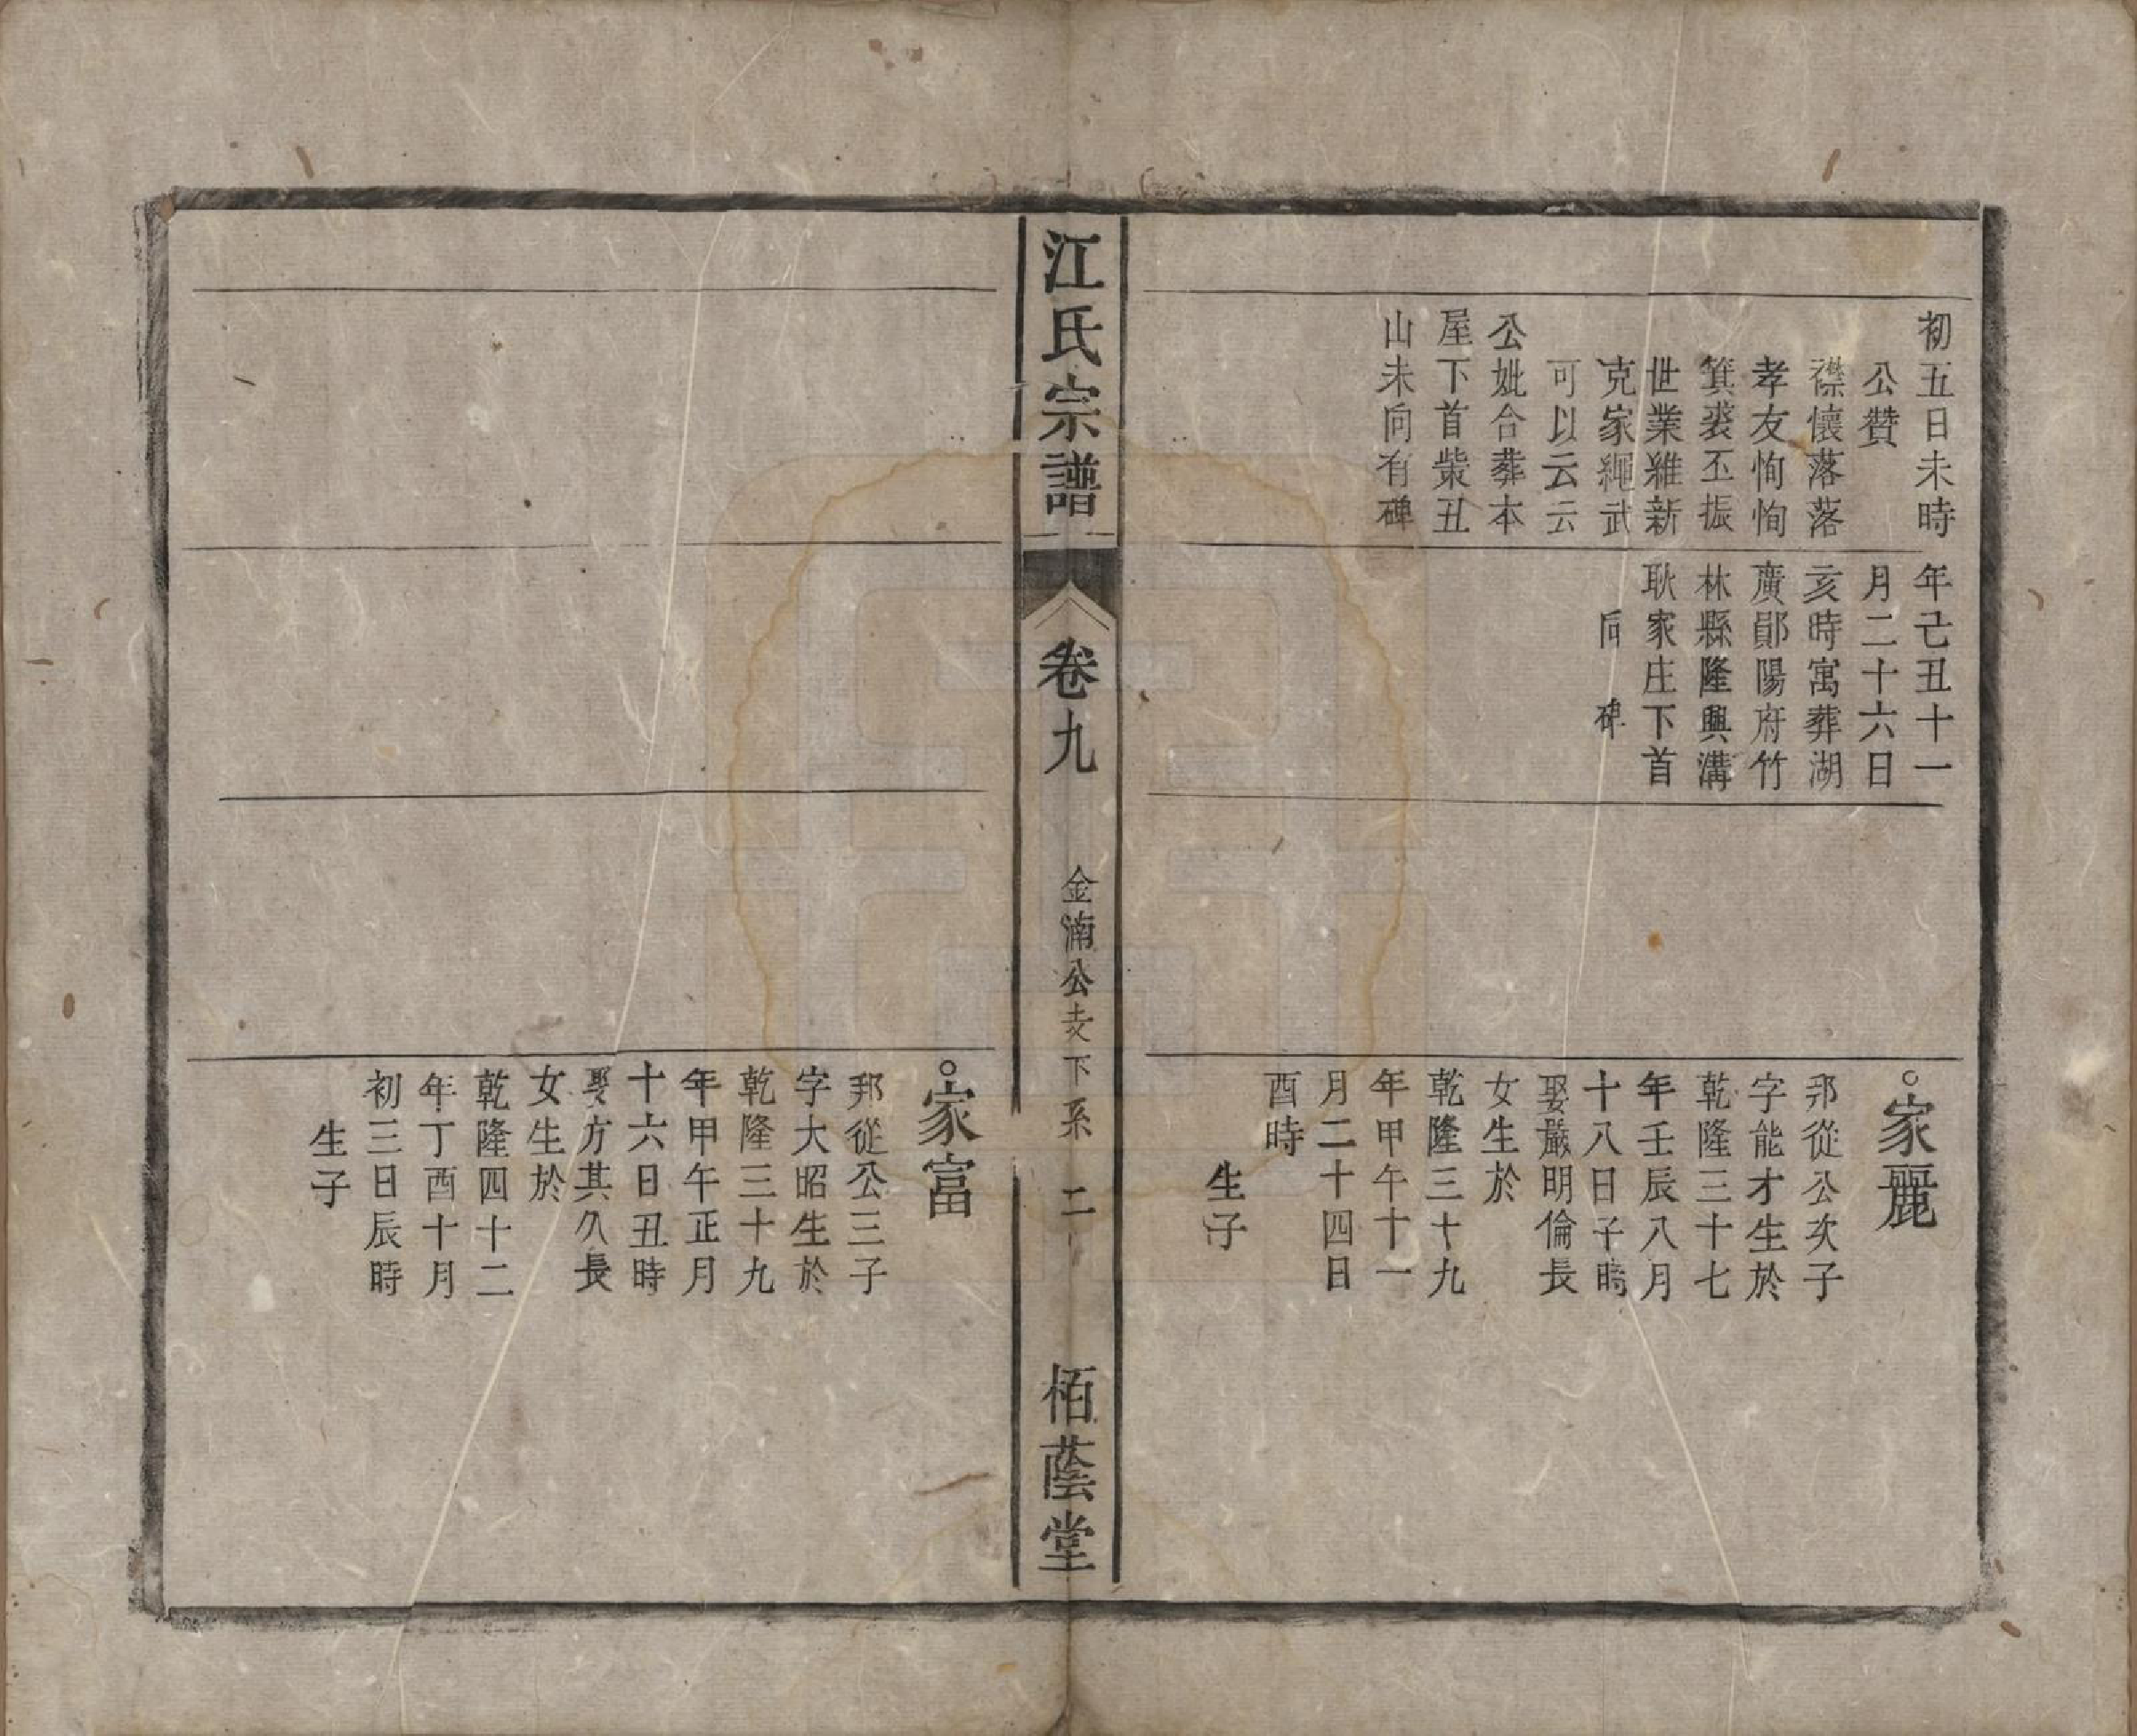 初五日未時
公贊
襟懷落落
孝友恂恂
箕裘丕振
世業維新
克家繩武
可以云云
公妣合葬本
屋下首柴丑
山未向有碑
年己丑十一
月二十六日
亥時寓葬湖
廣鄖陽府竹
林縣隆興溝
耿家庄下首
向 碑
○家麗
邦從公次子
字能才生於
乾隆三十七
年壬辰八月
十八日子時
娶嚴明倫長
女生於
乾隆三十九
年甲午十一
月二十四日
酉時
生子
江氏宗譜
卷九
金湳公支下系 二
栢蔭堂
○家富
邦從公三子
字大昭生於
乾隆三十九
年甲午正月
十六日丑時
娶方其久長
女生於
乾隆四十二
年丁酉十月
初三日辰時
生子